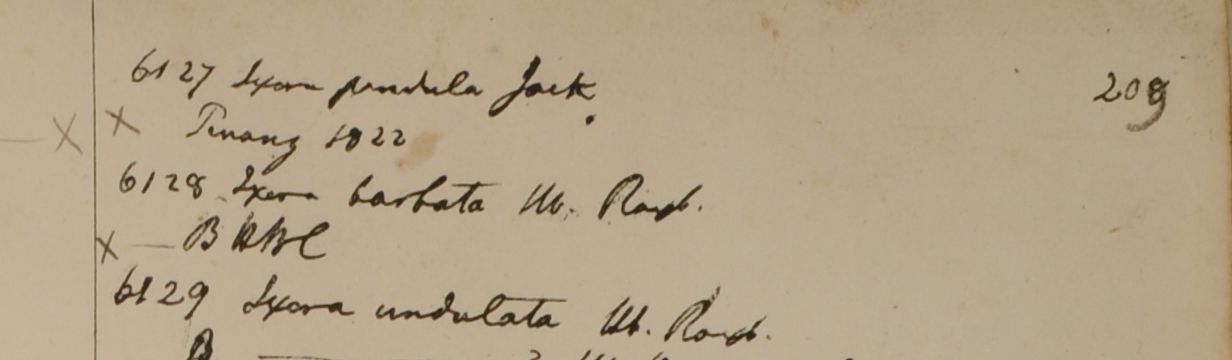 6127 Ixora pendula Jack.
209
Pinang 1822
6128 Ixora barbata Hb. Roxb.
B HBC
6129 Ixora undulata Hb. Roxb.
B